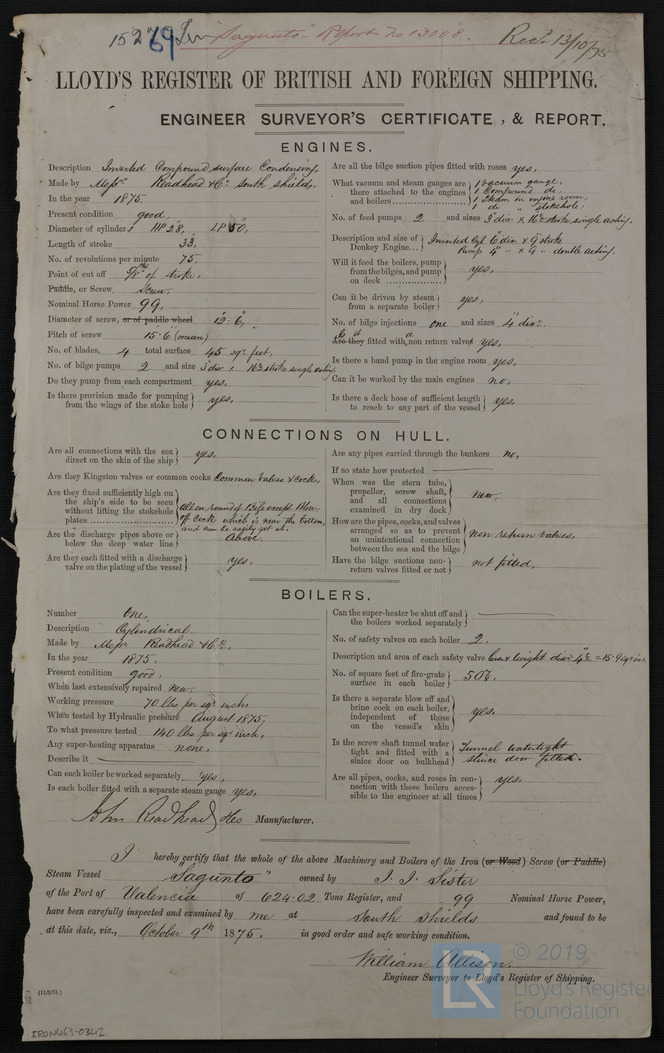 15269 Iron "Sagunto" Report No 13008. Rec'd 13/10/75
LLOYD'S REGISTER OF BRITISH AND FOREIGN SHIPPING.
ENGINEER SURVEYOR'S CERTIFICATE, & REPORT.
ENGINES.
Description Inverted Compound surface Condensing,
Made by Messrs Readhead & Co South Shields.
In the year 1875.
Present condition good,
Diameter of cylinders HP 28, LP 50,
Length of stroke 33,
No. of revolutions per minute 75.
Point of cut off 5/8ths of stroke.
Paddle, or Screw Screw.
Nominal Horse Power 99.
Diameter of screw, or of paddle wheel 12-6,
Pitch of screw 15.6 (mean)
No. of blades, 4 total surface 45 sqr feet,
No. of bilge pumps 2 and size 3 diar x 16½ stroke single acting.
Do they pump from each compartment yes,
Is there provision made for pumping from the wings of the stoke hole yes,
Are all the bilge suction pipes fitted with roses yes,
What vacuum and steam gauges are there attached to the engines and boilers
1 vacuum gauge,
1 Compound do.
1 Steam in engine room,
1 do " Stokehole,
No. of feed pumps 2 and sizes 3 diar x 16½ stroke single acting.
Description and size of Donkey Engine Inverted Cyl 6 diar x 9 stroke
Pump 4 " x 9 " double acting.
Will it feed the boilers, pump from the bilges, and pump on deck yes,
Can it be driven by steam from a separate boiler yes,
No. of bilge injections one and sizes 4 diar.
Is it
Are they fitted with, a non return valves yes,
Is there a hand pump in the engine room yes,
Can it be worked by the main engines no,
Is there a deck hose of sufficient length to reach to any part of the vessel yes,
CONNECTIONS ON HULL.
Are all connections with the sea direct on the skin of the ship yes.
Are they Kingston valves or common cocks Common valves & cocks,
Are they fixed sufficiently high on the ship's side to be seen without lifting the stokehole plates
all on round of Bilge except Blow-
off Cock which is near the bottom,
and can be easily got at.
Are the discharge pipes above or below the deep water line Above.
Are they each fitted with a discharge valve on the plating of the vessel yes.
Are any pipes carried through the bunkers no,
If so state how protected
When was the stern tube, propellor, screw shaft, and all connections examined in dry dock new,
How are the pipes, cocks, and valves arranged so as to prevent an unintentional connection between the sea and the bilge non return valves,
Have the bilge suctions non-return valves fitted or not not fitted,
BOILERS.
Number One,
Description Cylindrical.
Made by Messrs Readhead & Co.
In the year 1875.
Present condition good.
When last extensively repaired new.
Working pressure 70 lbs per sqr inch,
When tested by Hydraulic pressure August 1875.
To what pressure tested 140 lbs per sqr inch,
Any super-heating apparatus none,
Describe it
Can each boiler be worked separately yes,
Is each boiler fitted with a separate steam gauge yes,
Can the super-heater be shut off and the boilers worked separately
No. of safety valves on each boiler 2.
Description and area of each safety valve lever & weight diar 4½ = 15.9 sqr ins.
No. of square feet of fire-grate surface in each boiler 50¾.
Is there a separate blow off and brine cock on each boiler, independent of those on the vessel's skin yes,
Is the screw shaft tunnel water tight and fitted with a sluice door on bulkhead Tunnel watertight
Sluice door fitted.
Are all pipes, cocks, and roses in connection with these boilers accessible to the engineer at all times yes,
John Readhead & Co Manufacturer.
I hereby certify that the whole of the above Machinery and Boilers of the Iron (or Wood) Screw (or Paddle)
Steam Vessel "Sagunto" owned by J. J. Sister
of the Port of Valencia of 624.02 Tons Register, and 99 Nominal Horse Power,
have been carefully inspected and examined by me at South Shields and found to be
at this date, viz., October 9th 1875. in good order and safe working condition.
William Allison.
Engineer Surveyor to Lloyd's Register of Shipping.
IRON463-0342
© 2019
LR Lloyd's Register
Foundation